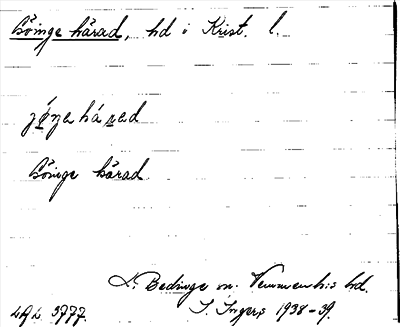 Göinge härad, hd i Krist. l.
jöŋe hárad
Göinge härad
L. Bedinge sn. Vemmenhös hd.
I. Ingers 1938-39.
LAL 3777.